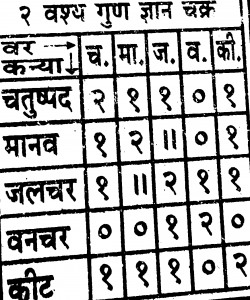 २ वश्य गुण ज्ञान चक्र
वर → कन्या ↓ च. मा. ज. व. की.
चतुष्पद २ १ १ ० १
मानव १ २ ॥ ० १
जलचर १ ॥ २ १ १
वनचर ० ० १ २ ०
कीट १ १ १ ० २